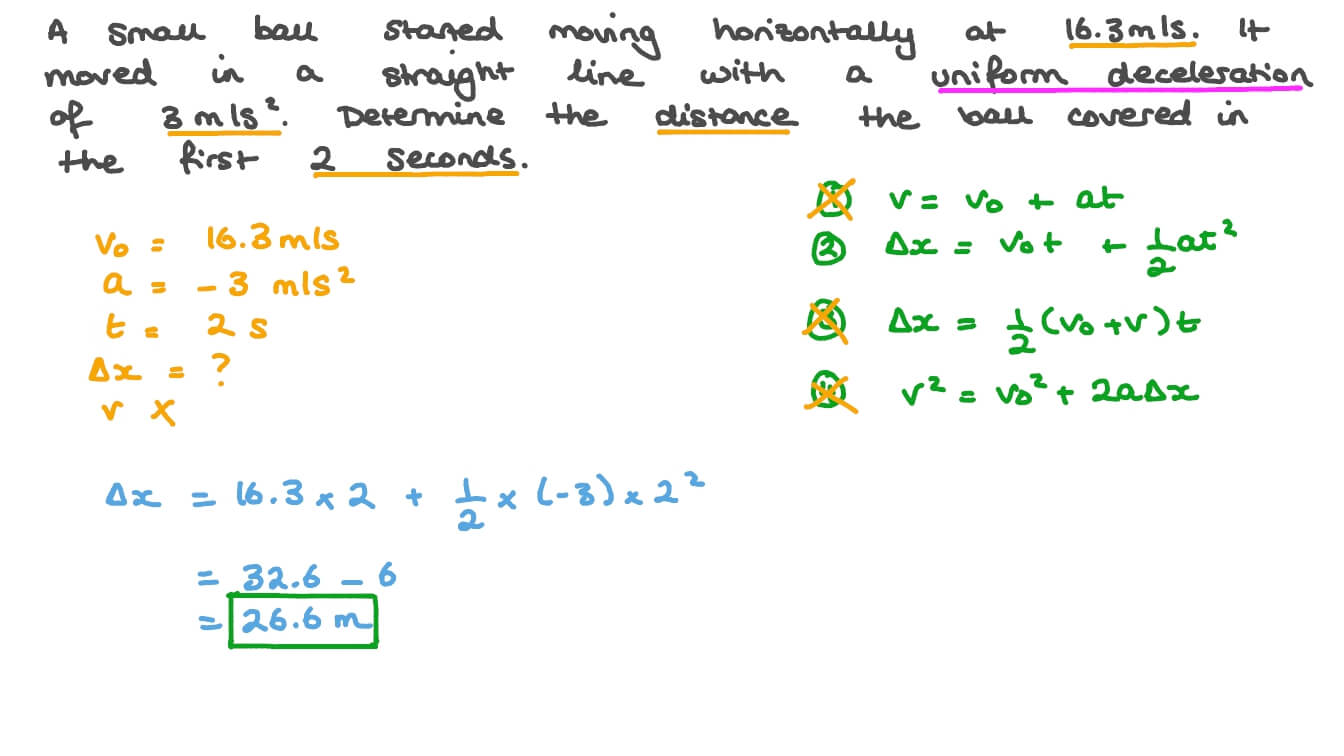 A small ball started moving horizontally at 16.3 m/s. It
moved in a straight line with a uniform deceleration
of 3 m/s². Determine the distance the ball covered in
the first 2 seconds.
① v = v₀ + at
v₀ = 16.3 m/s
② Δx = v₀t + 1/2 at²
a = -3 m/s²
t = 2 s
③ Δx = 1/2 (v₀ + v)t
Δx = ?
④ v² = v₀² + 2aΔx
v ×
Δx = 16.3 × 2 + 1/2 × (-3) × 2²
= 32.6 - 6
= 26.6 m